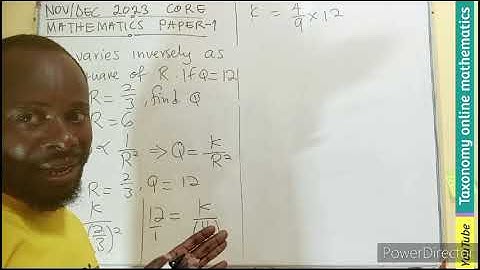 NOV/DEC 2023 CORE
MATHEMATICS PAPER-1
varies inversely as
square of R. If Q=12
R = 2/3, find Q
R = 6
∝ 1/R² ⇒ Q = K/R²
R = 2/3, Q = 12
K/(2/3)²
12/1 = K/(4/
K = 4/9 × 12
Taxonomy online mathematics
YouTube
PowerDirector